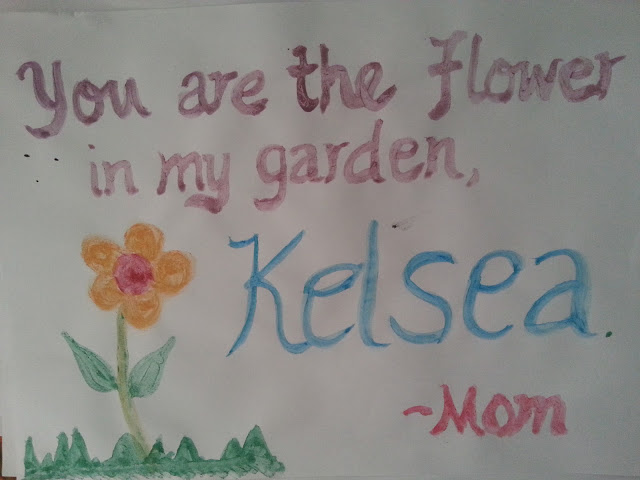 You are the flower
in my garden,
Kelsea.
~Mom